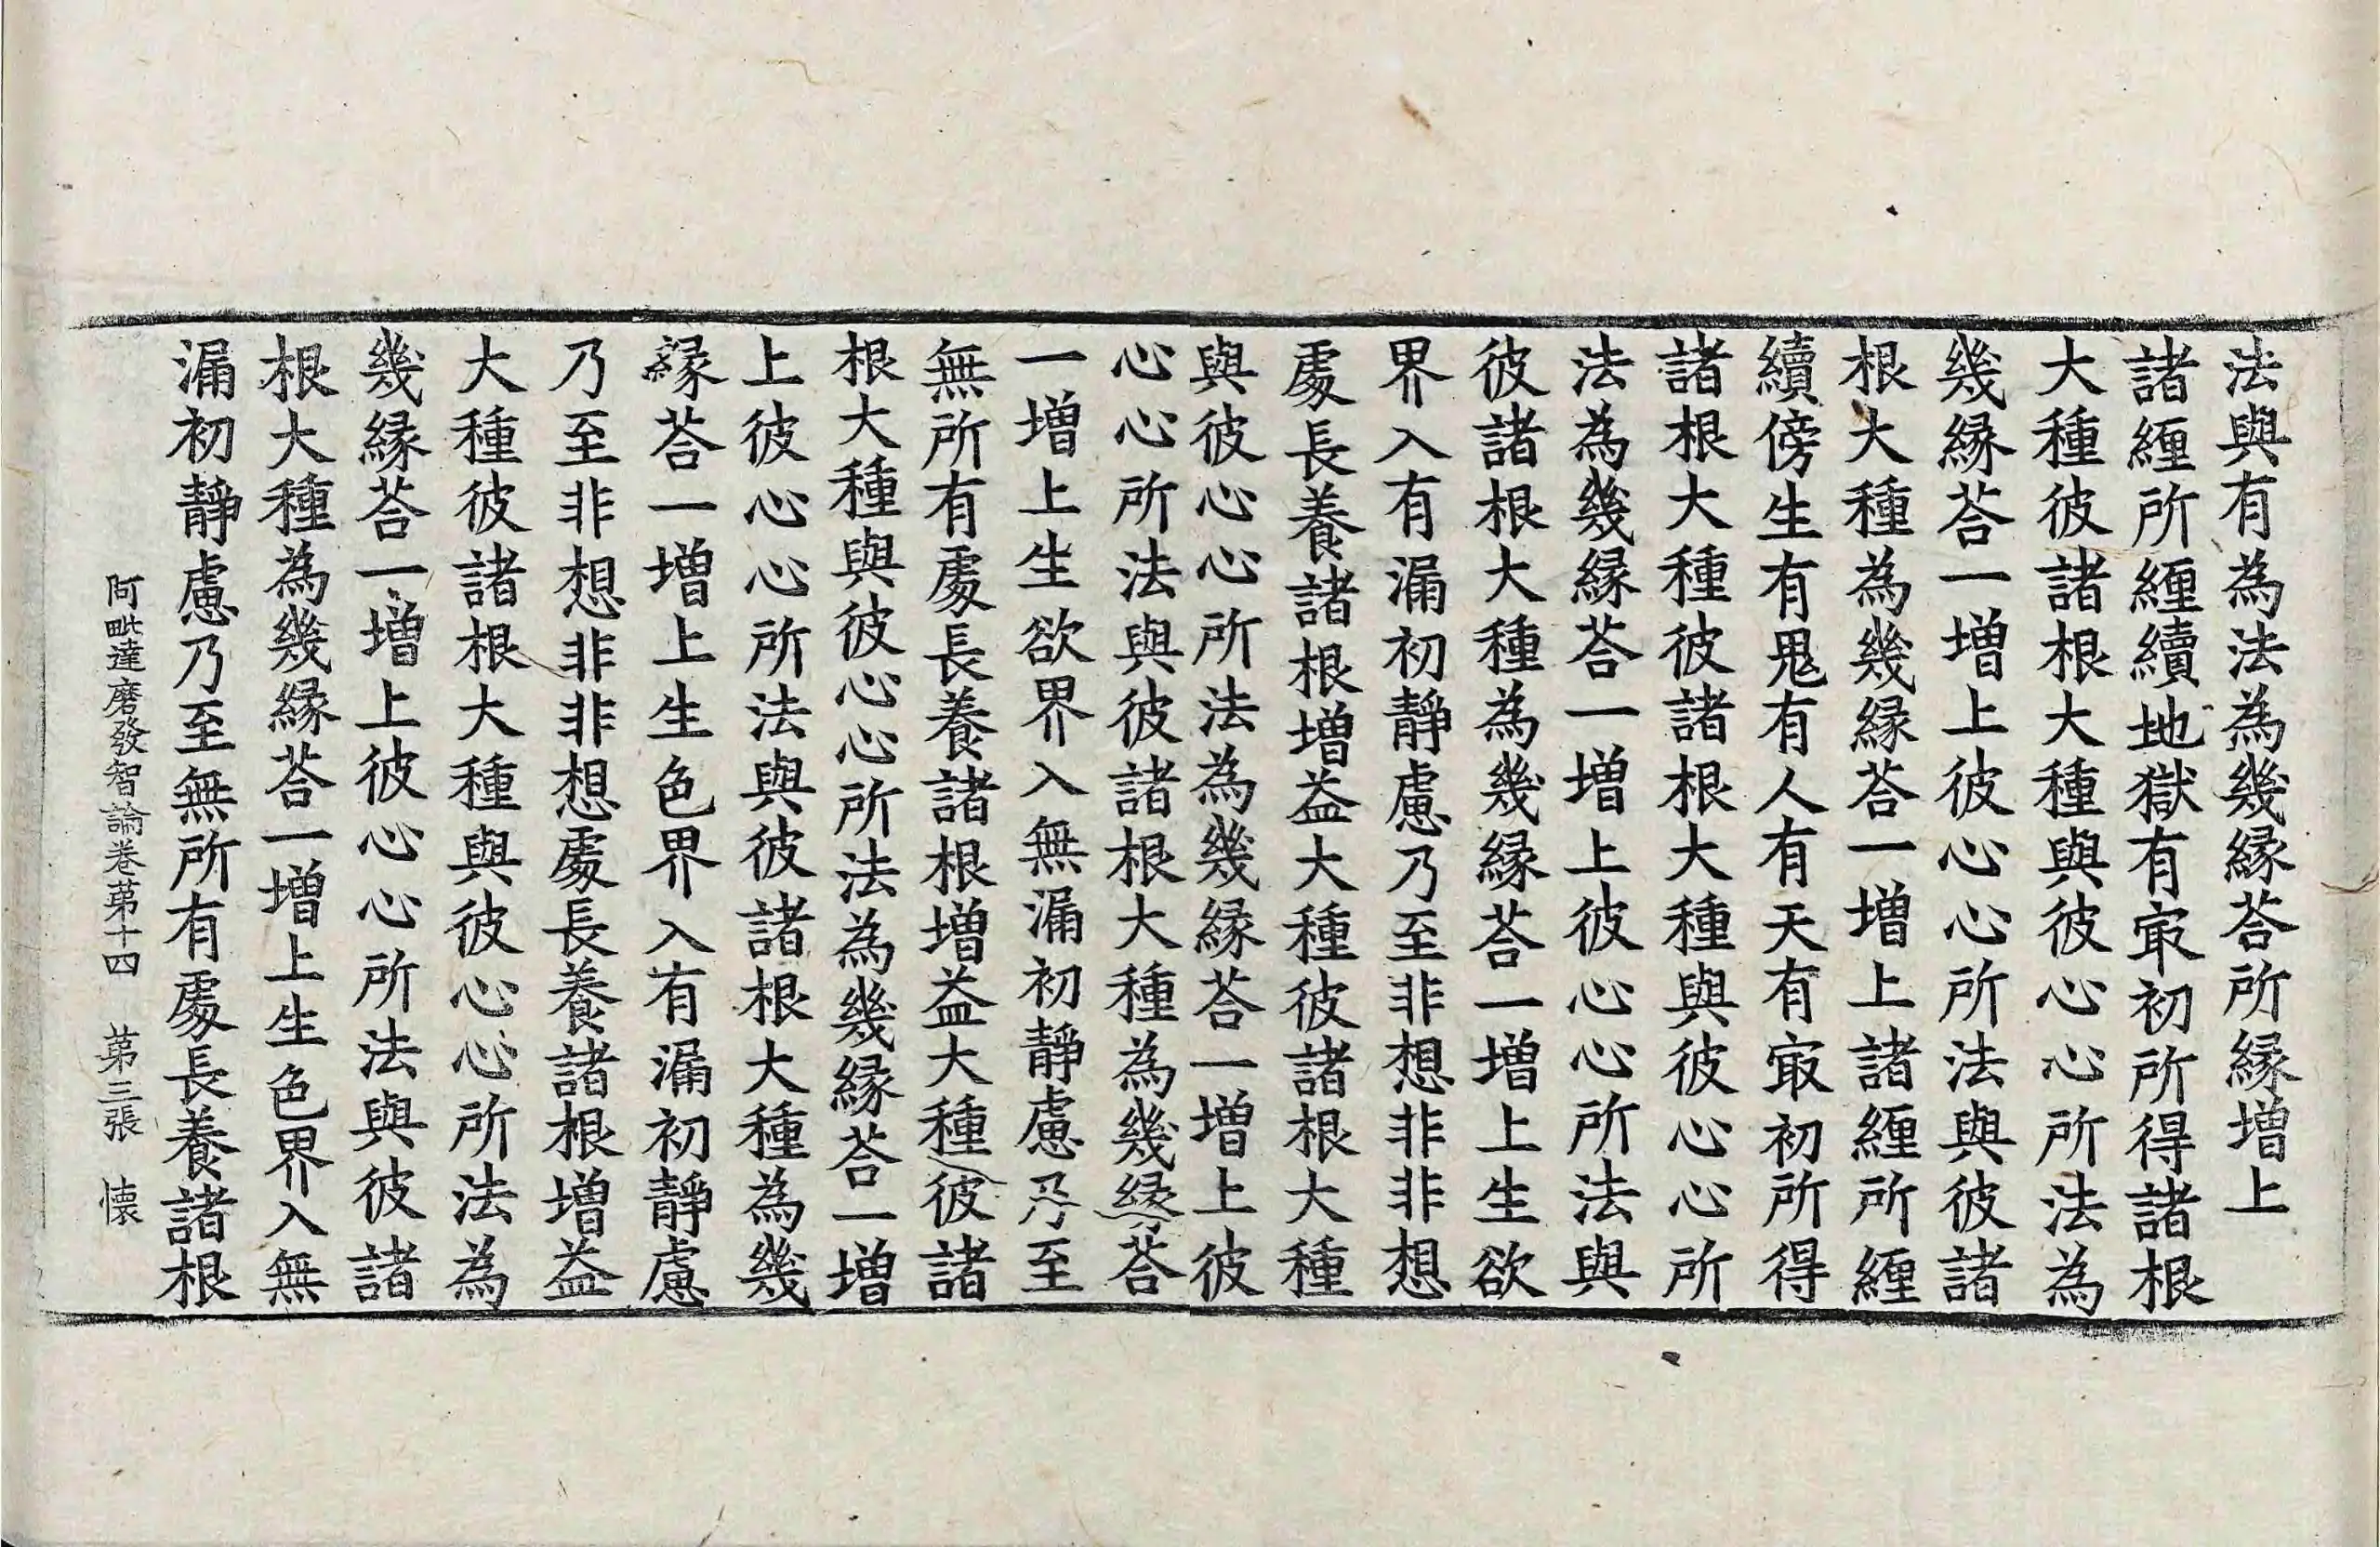 法與有為法為幾縁荅所縁增上
諸纒所纒續地獄有㝡初所得諸根
大種彼諸根大種與彼心心所法為
幾縁荅一增上彼心心所法與彼諸
根大種為幾縁荅一增上諸纒所纒
續傍生有鬼有人有天有㝡初所得
諸根大種彼諸根大種與彼心心所
法為幾縁荅一增上彼心心所法與
彼諸根大種為幾縁荅一增上生欲
界入有漏初靜慮乃至非想非非想
處長養諸根增益大種彼諸根大種
與彼心心所法為幾縁荅一增上彼
心心所法與彼諸根大種為幾縁荅
一增上生欲界入無漏初靜慮乃至
無所有處長養諸根增益大種彼諸
根大種與彼心心所法為幾縁荅一增
上彼心心所法與彼諸根大種為幾
縁荅一增上生色界入有漏初靜慮
乃至非想非非想處長養諸根增益
大種彼諸根大種與彼心心所法為
幾縁荅一增上彼心心所法與彼諸
根大種為幾縁荅一增上生色界入無
漏初靜慮乃至無所有處長養諸根
阿毗達磨發智論卷苐十四 苐三張 懐